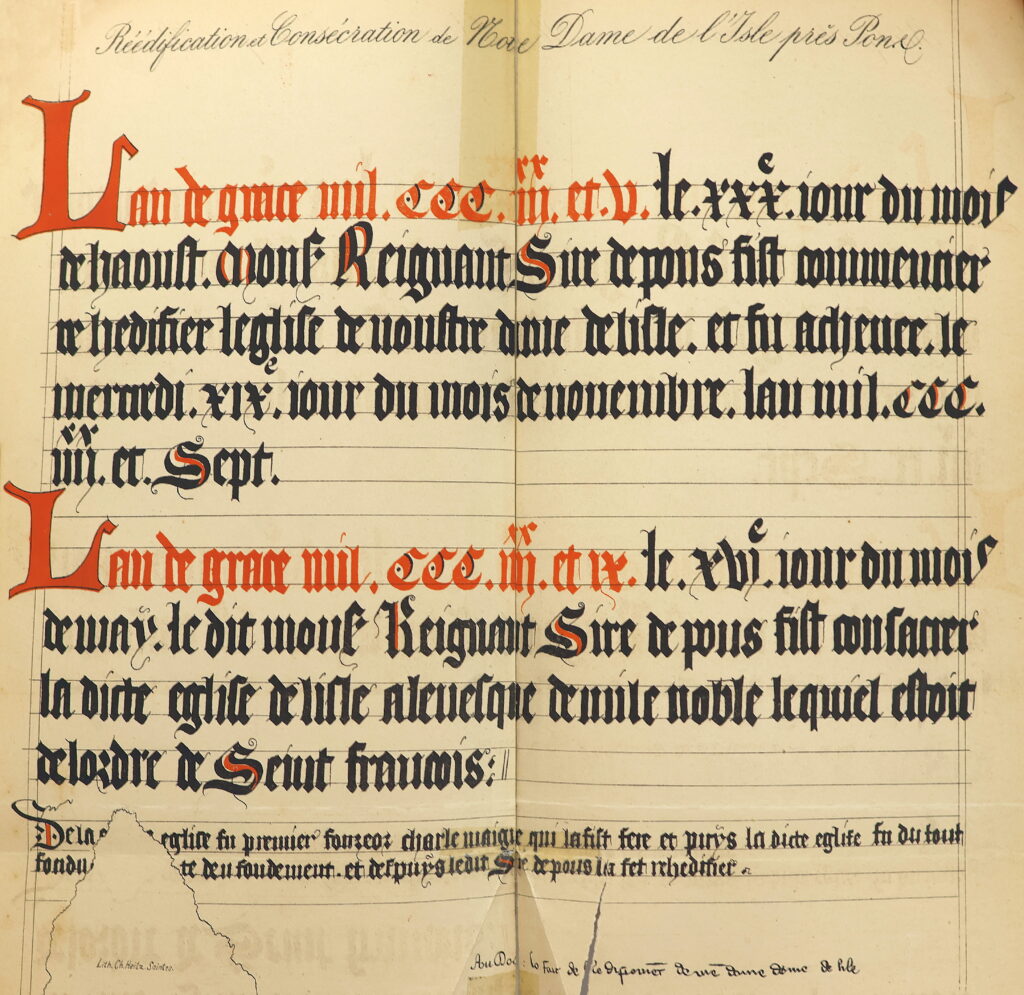 Réédification et Consécration de Notre Dame de l'Isle près Pons.
Lan de grace mil. CCC. iiii.^xx et. V. le. xxx^e. iour du mois
de haoust. Mons^r Reignaut Sire de pons fist commencier
re hedifier leglise de noustre dame de lisle. et fu achevee. le
mercredi. xix^e. iour du mois de novembre. lan mil. CCC.
iiii.^xx et. Sept.
Lan de grace mil. CCC. iiii.^xx et ix. le. xvi^e. iour du mois
de may. le dit mons^r Reignaut Sire de pons fist consacrer
la dicte eglise de lisle a levesque de nuile noble lequiel estoit
de lordre de Seint francois:
De la eglise fu premier fonzeoz charle maigne qui la fist fere et puys la dicte eglise fu du tout
fondu te deu fondement. et despuys le dit Sire de pons la fet rehedifier.
Lith. Ch. Heitz Saintes.
Au Dos : de dame de lile